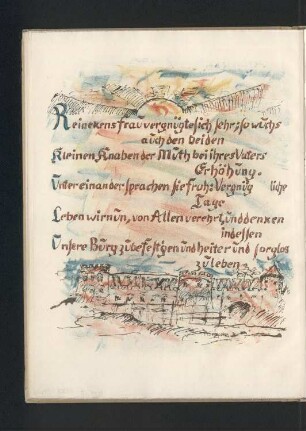 Reinekens Frau vergnügte sich sehr; so wuchs
auch den beiden
Kleinen Knaben der Muth bei ihres Vaters
Erhöhung.
Unter einander sprachen sie froh: Vergnüg liche
Tage
Leben wir nun, von Allen verehrt, und denken
indessen
Unsere Burg zu befestgen und heiter und sorglos
zu leben.